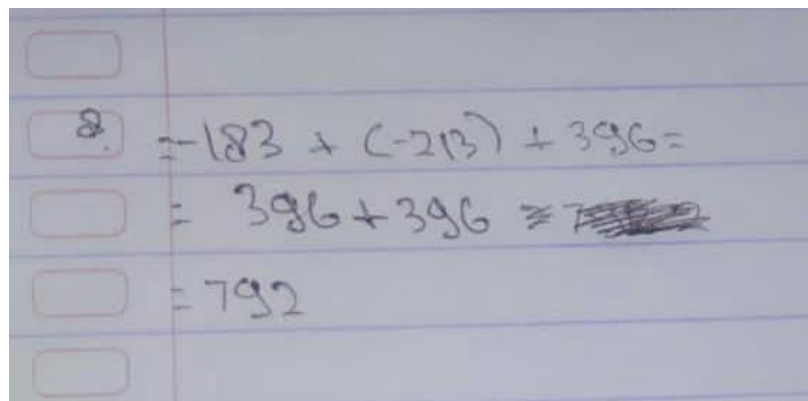 2. =-183 + (-213) + 396=
= 396 + 396 =
= 792